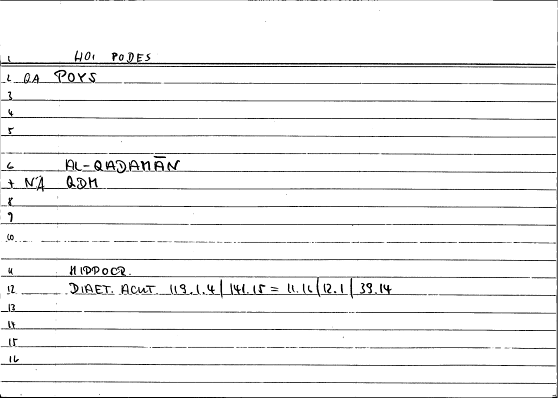 1 HOI PODES
2 QA POYS
3
4
5
6 AL-QADAMĀN
7 NA QDM
8
9
10
11 HIPPOCR.
12 DIAET. ACUT. 119.1.4 | 141.15 = 11.16 | 12.1 | 39.14
13
14
15
16